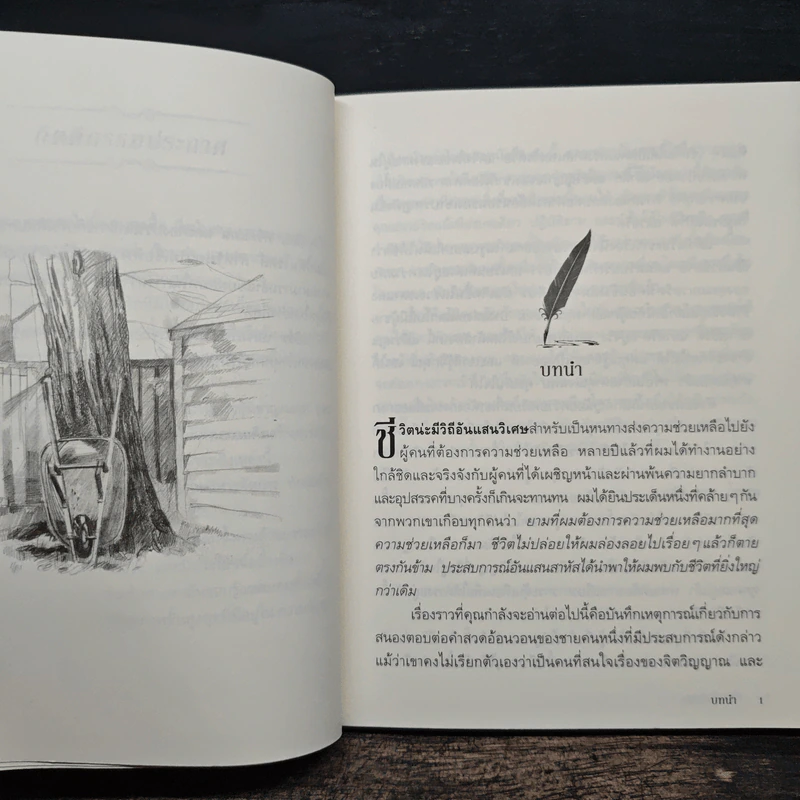 บทนำ
ชีวิตน่ะมีวิถีอันแสนวิเศษสำหรับเป็นหนทางส่งความช่วยเหลือไปยัง
ผู้คนที่ต้องการความช่วยเหลือ หลายปีแล้วที่ผมได้ทำงานอย่าง
ใกล้ชิดและจริงจังกับผู้คนที่ได้เผชิญหน้าและผ่านพ้นความยากลำบาก
และอุปสรรคที่บางครั้งก็เกินจะทานทน ผมได้ยินประเด็นหนึ่งที่คล้ายๆ กัน
จากพวกเขาเกือบทุกคนว่า ยามที่ผมต้องการความช่วยเหลือมากที่สุด
ความช่วยเหลือก็มา ชีวิตไม่ปล่อยให้ผมล่องลอยไปเรื่อยๆ แล้วก็ตาย
ตรงกันข้าม ประสบการณ์อันแสนสาหัสได้นำพาให้ผมพบกับชีวิตที่ยิ่งใหญ่
กว่าเดิม
เรื่องราวที่คุณกำลังจะอ่านต่อไปนี้คือบันทึกเหตุการณ์เกี่ยวกับการ
สนองตอบต่อคำสวดอ้อนวอนของชายคนหนึ่งที่มีประสบการณ์ดังกล่าว
แม้ว่าเขาคงไม่เรียกตัวเองว่าเป็นคนที่สนใจเรื่องของจิตวิญญาณ และ
บทนำ 1